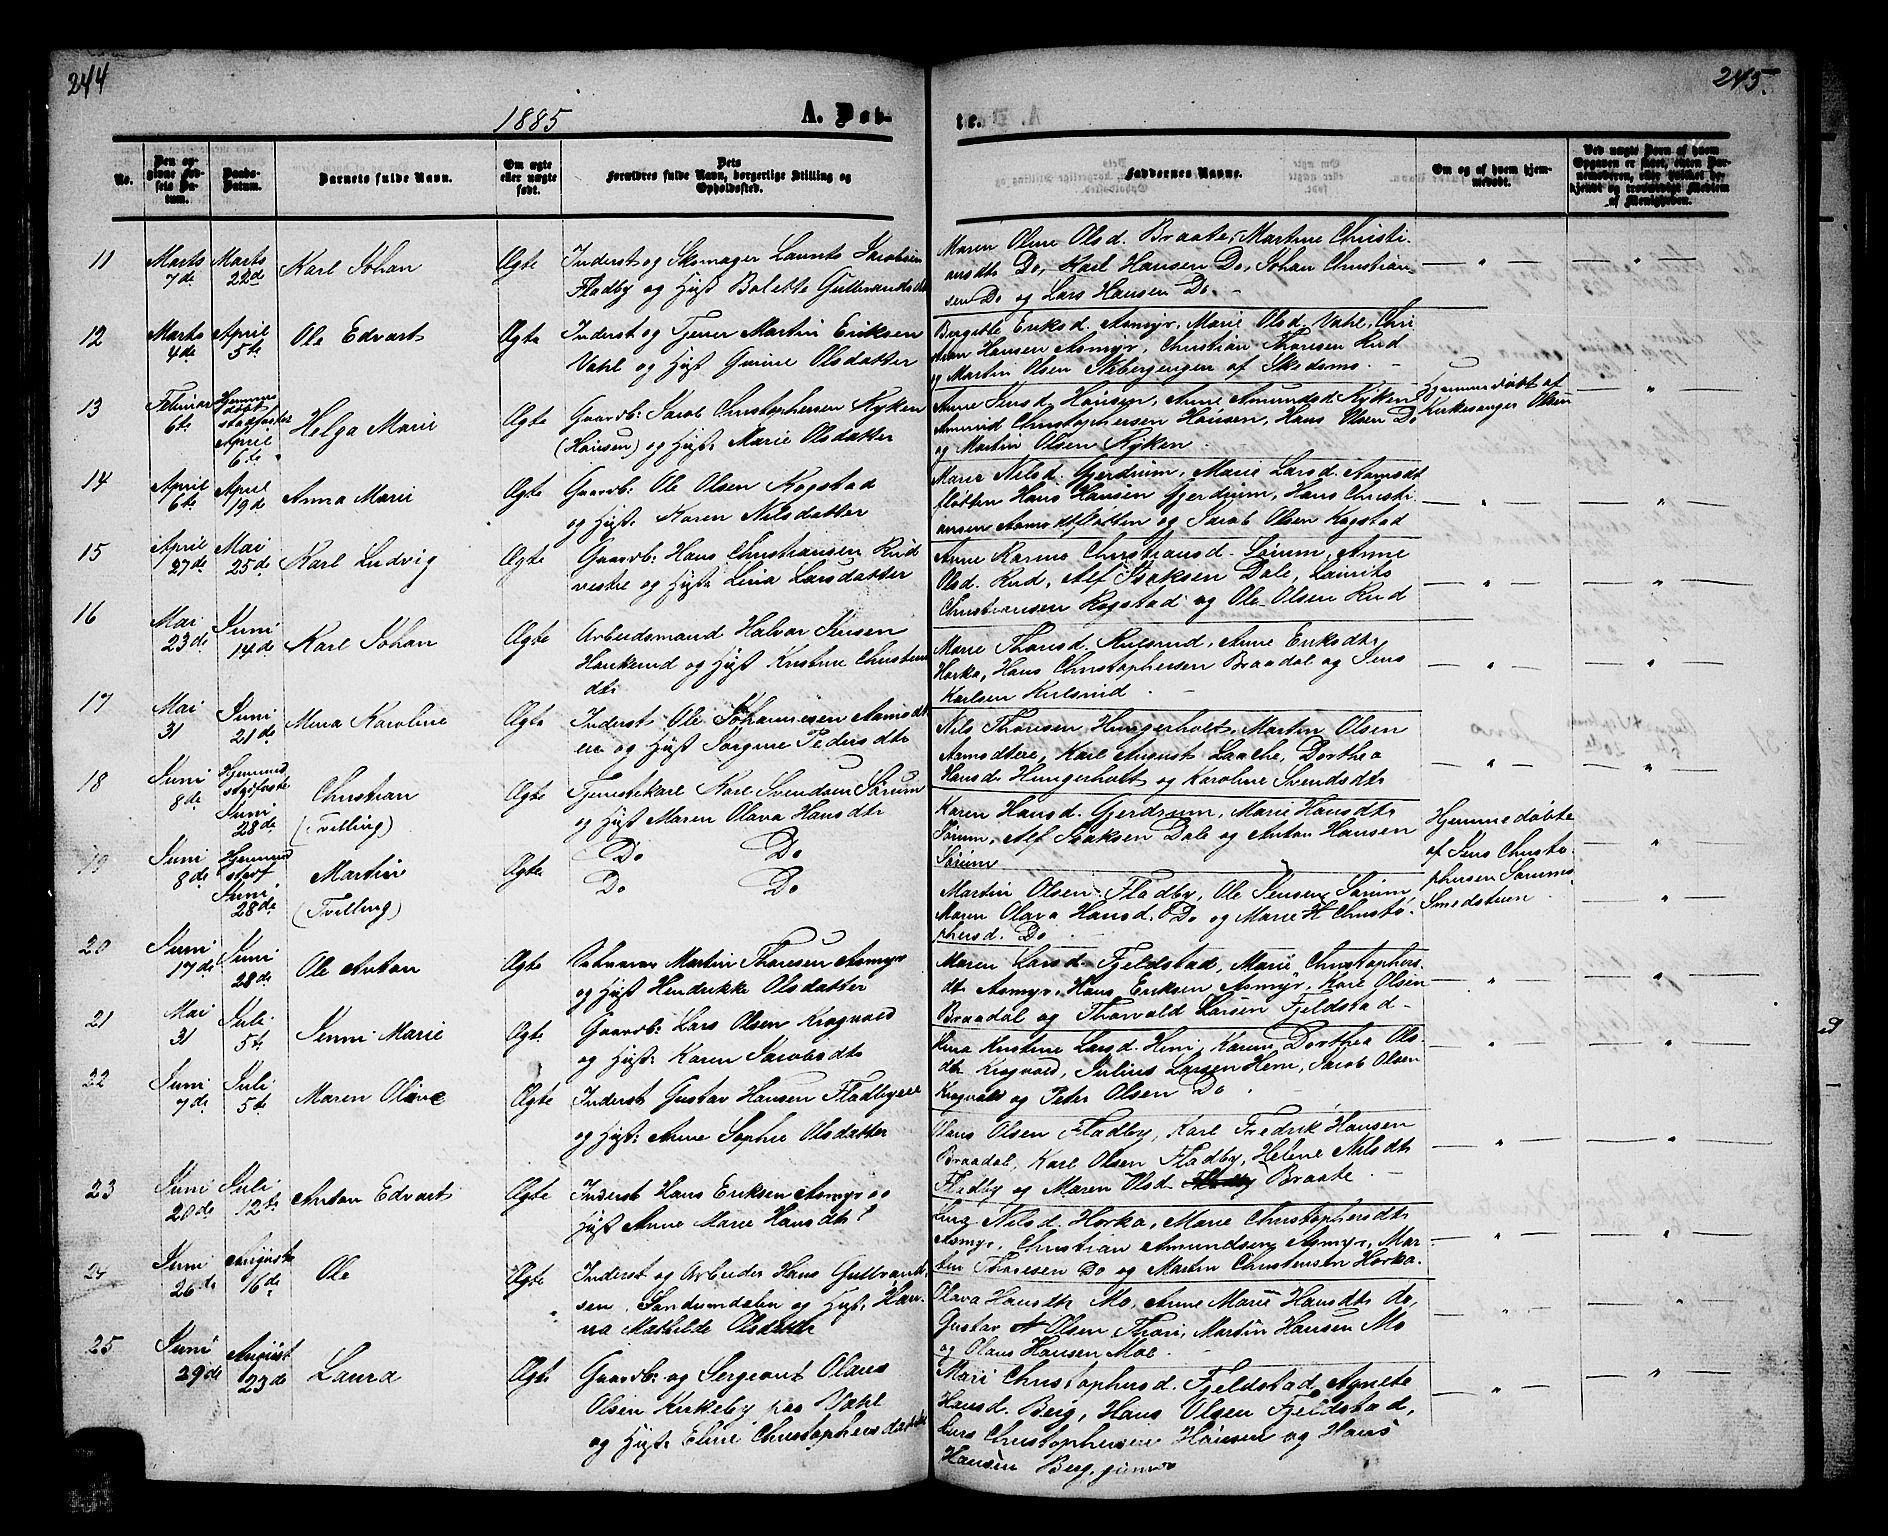 244
1885
A. Døb-
No.
Den op-
givne Fød-
sels Da-
tum.
Daabs-
Datum.
Barnets fulde Navn.
Om ægte
eller uægte
født.
Dets
Forældres fulde Navn, borgerlige Stilling og
Opholdssted.
11
Marts
7de
Marts
22de
Karl Johan
Ægte
Inderst og Skomager Laurits Jacobsen
Fladby og Hust Bolette Gulbrandsdtr
12
Marts
4de
April
5te
Ole Edvart
Ægte
Inderst og Tjener Martin Eriksen
Vahl og Hust Gurine Olsdatter
13
Februar
6te
Hjemme
døbt
stadfæstet
April
6te
Helga Marie
Ægte
Gaardb: Jacob Christophersen Kyken
(Hansen) og Hust: Marie Olsdatter
14
April
6te
April
19de
Anna Marie
Ægte
Gaardb: Ole Olsen Rogstad
og Hust: Karen Nilsdatter
15
April
27de
Mai
25de
Karl Ludvig
Ægte
Gaardb: Hans Christiansen Rud
vestre og Hust: Lina Larsdatter
16
Mai
23de
Juni
14de
Karl Johan
Ægte
Arbeidsmand Halvor Jensen
Haukerud og Hust Kristine Christens
dtr
17
Mai
31
Juni
21de
Mina Karoline
Ægte
Inderst Ole Johannesen Aamodt
er og Hust Jorgine Pedersdtr
18
Juni
8de
Juni
28de
Christian
(Tvilling)
Ægte
Tjenestekarl Karl Svendsen Sørum
og Hust Maren Olava Hansdtr
19
Juni
8de
Juni
28de
Martin
(Tvilling)
Ægte
Do Do
Do Do
20
Juni
17de
Juni
28de
Ole Anton
Ægte
Martin Thoresen Asmyr
og Hust Hendrikke Olsdatter
21
Mai
31
Juli
5te
Jenni Marie
Ægte
Gaardb: Lars Olsen Krogvold
og Hust: Karen Jacobsdtr
22
Juni
7de
Juli
5te
Maren Oline
Ægte
Inderst Gustav Hansen Fladbyeie
og Hust: Anne Sophie Olsdatter
23
Juni
20de
Juli
12te
Anton Edvart
Ægte
Inderst Hans Eriksen Asmyr og
Hust Anne Marie Hansdtr
24
Juni
26de
August
16de
Ole
Ægte
Inderst og Arbeider Hans Gulbrand-
sen, Sandumdalen og Hust: Han-
na Mathilde Olsdatter
25
Juni
29de
August
23de
Laura
Ægte
Gaardb: og Sergeant Olaus
Olsen Kirkeby paa Vahl
og Hust: Eline Christophersdatter
245.
te.
Faddernes Navne.
Om og af hvem hjem-
medøbt.
Ved uægte Børn af hvem
Opgaven er sket, enten Bar-
nemoderen, eller hvilket be-
kjendt og troværdigt Medlem
af Menigheden.
Maren Oline Olsd. Braate, Martine Christi-
ansdtr Do, Karl Hansen Do, Johan Christian-
sen Do og Lars Hansen Do.
Bergitte Eriksd. Asmyr, Marie Olsd. Vahl, Chri
stian Hansen Asmyr, Christian Thoresen Rud
og Martin Olsen af Skedsmo.
Anne Jensd. Hansen, Anne Amundsd Kyken
Amund Christophersen Hansen, Hans Olsen Do
og Martin Olsen Kyken.
Hjemmedøbt af
Kirkesanger Olsen
Maria Nilsd. Gjerdrum, Marie Larsd. Aamodt
fløtten Hans Hansen Gjerdrum, Hans Christi-
ansen Aamodtfløtten og Jacob Olsen Rogstad
Anne Karine Christiansd. Sørum, Anne
Olsd. Rud, Alf Isaksen Dale, Laurits
Christiansen Rogstad og Ole Olsen Rud
Marie Thorsd. Kulsrud, Anne Eriksdtr
Horka, Hans Christophersen Braadal og Jens
Karlsen Kulsrud.
Nils Thoresen Hungerholt, Martin Olsen
Aamodteie, Karl August Laache, Dorthea
Hansd. Hungerholt og Karoline Svendsdtr
Karen Hansd. Gjerdrum, Marie Hansdtr
Sørum, Alf Isaksen Dale og Anton Hansen
Sørum
Hjemmedøbte
af Jens Christo-
phersen Sørums-
Smedstuen.
Martin Olsen Fladby, Ole Jensen Sørum,
Maren Olava Hansd. Do og Marie H Christo-
phersd. Do
Maren Larsd. Fjeldstad, Marie Christophers-
dtr Asmyr, Hans Eriksen Asmyr, Karl Olsen
Braadal og Thorvald Larsen Fjeldstad
Lina Kristine Larsd. Hem, Karine Dorthea Ols-
dtr Krogvold, Julius Larsen Hem, Jacob Olsen
Krogvold og Peter Olsen Do.
Olaus Olsen Fladby, Karl Fredrik Hansen
Braadal, Karl Olsen Fladby, Helene Nilsdtr
Fladby og Maren Olsd. Braate
Nilsd. Horka, Marie Christophersdtr
Asmyr, Christian Amundsen Asmyr, Mar-
tin Thoresen Do og Martin Christensen Horka.
Olava Hansdtr Mo, Anne Marie Hansdtr do,
Gustav Olsen Thori, Martin Hansen Mo
og Olaus Hansen Moe.
Mari Christophersd. Fjeldstad, Agnete
Hansd. Berg, Hans Olsen Fjeldstad,
Lars Christophersen Hansen og Hans
Hansen Berg